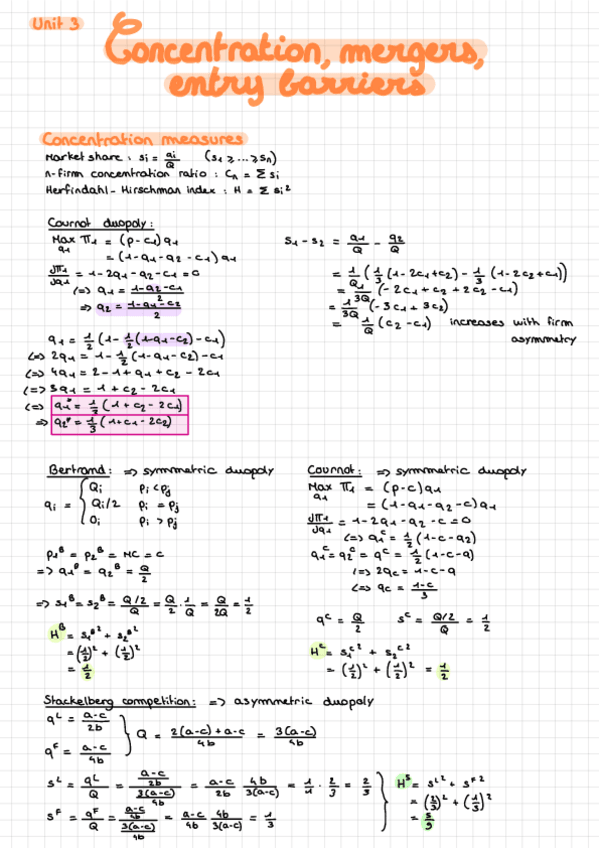 Unit 3
Concentration, mergers,
entry barriers
Concentration measures
Market share : si = qi/Q (s1 ≥ ... ≥ sn)
n-firm concentration ratio : Cn = Σ si
Herfindahl - Hirschman index : H = Σ si²
Cournot duopoly :
Max π1 = (p - c1) q1
q1
= (1 - q1 - q2 - c1) q1
dπ1/dq1 = 1 - 2q1 - q2 - c1 = 0
(=) q1 = (1 - q2 - c1)/2
=> q2 = (1 - q1 - c2)/2
q1 = 1/2 (1 - 1/2 (1 - q1 - c2) - c1)
(=) 2q1 = 1 - 1/2 (1 - q1 - c2) - c1
(=) 4q1 = 2 - 1 + q1 + c2 - 2c1
(=) 3q1 = 1 + c2 - 2c1
(=) q1* = 1/3 (1 + c2 - 2c1)
=> q2* = 1/3 (1 + c1 - 2c2)
s1 - s2 = q1/Q - q2/Q
= 1/Q (1/3 (1 - 2c1 + c2) - 1/3 (1 - 2c2 + c1))
= 1/3Q (-2c1 + c2 + 2c2 - c1)
= 1/3Q (-3c1 + 3c2)
= 1/Q (c2 - c1) increases with firm
asymmetry
Bertrand : => symmetric duopoly
qi = { Qi pi < pj
Qi/2 pi = pj
0i pi > pj
p1ᴮ = p2ᴮ = MC = c
=> q1ᴮ = q2ᴮ = Q/2
=> s1ᴮ = s2ᴮ = (Q/2)/Q = Q/2 · 1/Q = Q/2Q = 1/2
Hᴮ = s1ᴮ² + s2ᴮ²
= (1/2)² + (1/2)²
= 1/2
Cournot : => symmetric duopoly
Max π1 = (p - c) q1
q1
= (1 - q1 - q2 - c) q1
dπ1/dq1 = 1 - 2q1 - q2 - c = 0
(=) q1ᶜ = 1/2 (1 - c - q2)
q1ᶜ = q2ᶜ = qᶜ = 1/2 (1 - c - q)
(=) 2qc = 1 - c - q
(=) qc = (1 - c)/3
qᶜ = Q/2 sᶜ = (Q/2)/Q = 1/2
Hᶜ = s1ᶜ² + s2ᶜ²
= (1/2)² + (1/2)² = 1/2
Stackelberg competition : => asymmetric duopoly
qᴸ = (a-c)/2b
qᶠ = (a-c)/4b } Q = (2(a-c) + a-c)/4b = 3(a-c)/4b
sᴸ = qᴸ/Q = ((a-c)/2b)/(3(a-c)/4b) = (a-c)/2b 4b/3(a-c) = 1/1 · 2/3 = 2/3
sᶠ = qᶠ/Q = ((a-c)/4b)/(3(a-c)/4b) = (a-c)/4b 4b/3(a-c) = 1/3
Hˢ = sᴸ² + sᶠ²
= (2/3)² + (1/3)²
= 5/9